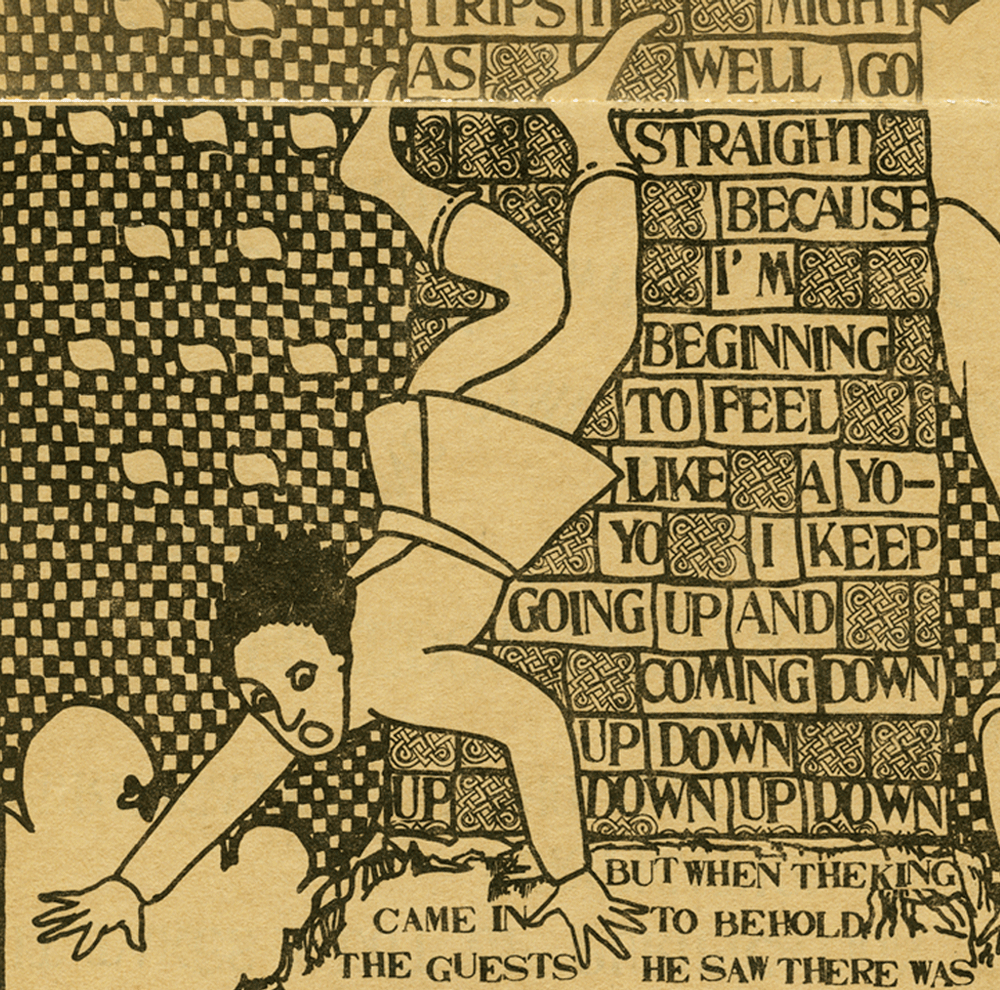 TRIPS I MIGHT
AS WELL GO
STRAIGHT
BECAUSE
I'M
BEGINNING
TO FEEL
LIKE A YO-
YO I KEEP
GOING UP AND
COMING DOWN
UP DOWN
UP DOWN UP DOWN
BUT WHEN THE KING
CAME IN TO BEHOLD
THE GUESTS HE SAW THERE WAS